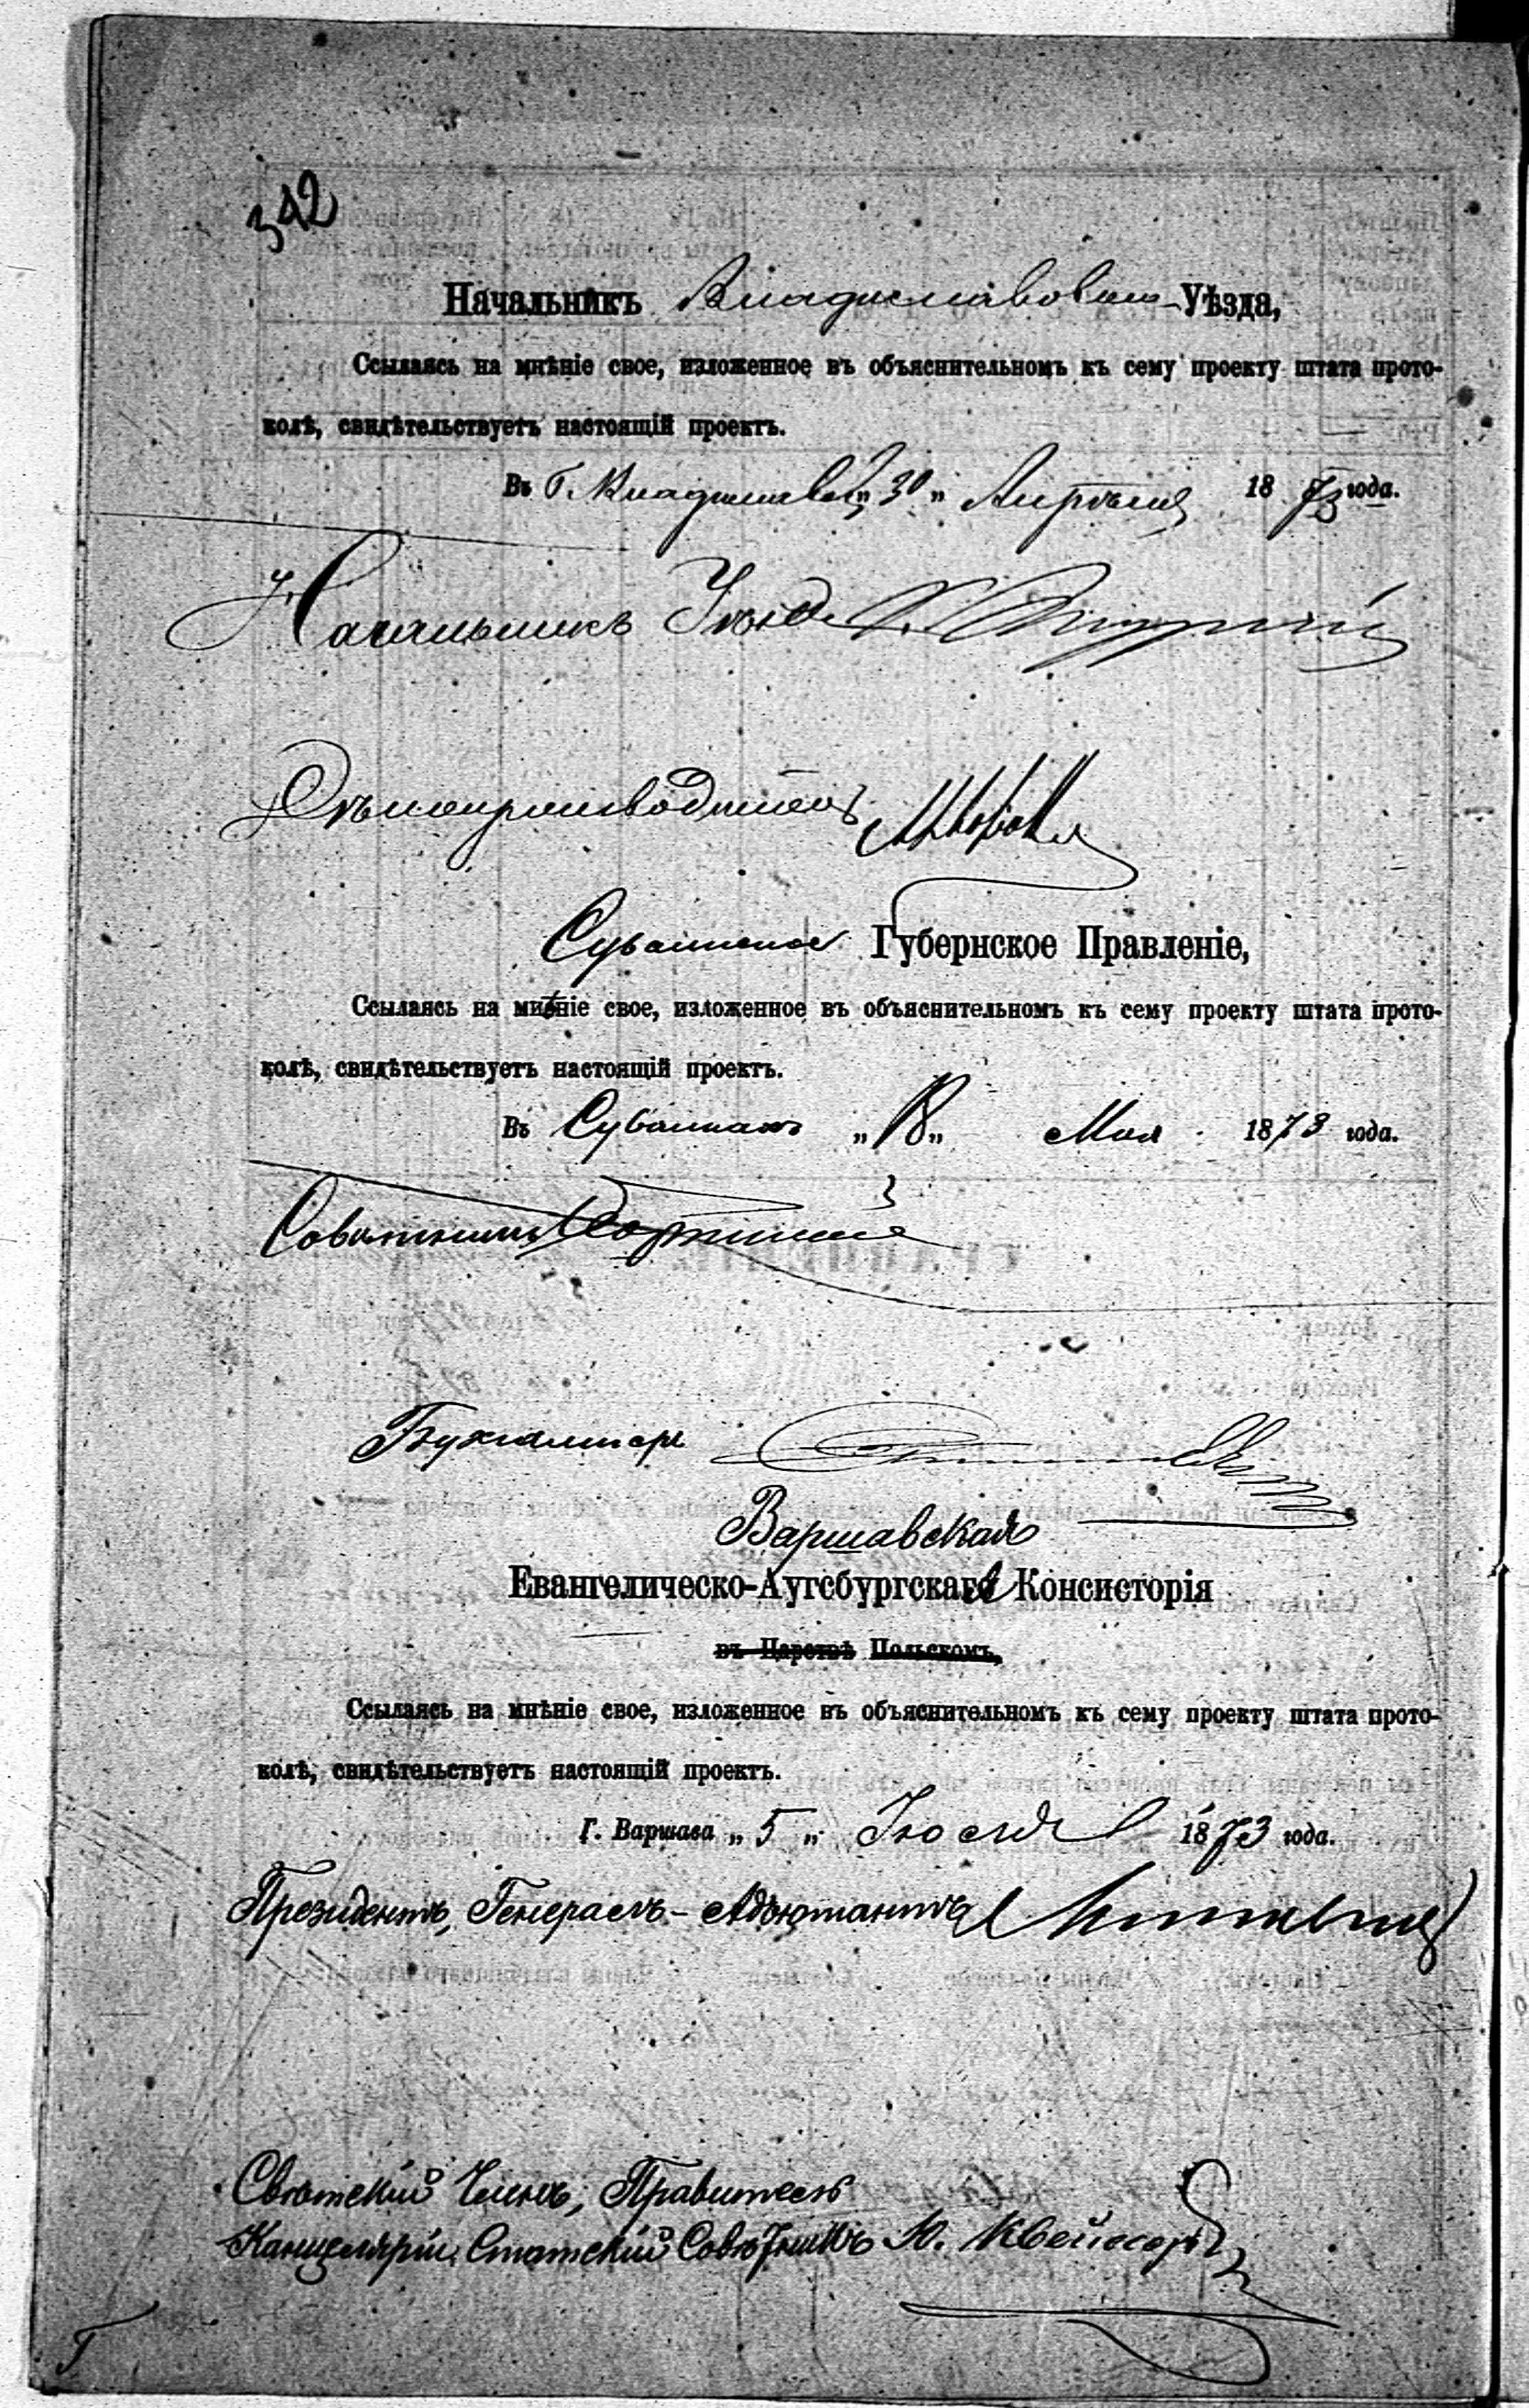 342
Начальникъ Владиславовск. Уѣзда,
Ссылаясь на мнѣніе свое, изложенное въ объяснительномъ къ сему проекту штата прото-
колѣ, свидѣтельствуетъ настоящій проектъ.
Въ г. Владиславов „30„ Апрѣля 1873 года.
Начальникъ Уѣзда
Дѣлопроизводитель
Сувалкское Губернское Правленіе,
Ссылаясь на мнѣніе свое, изложенное въ объяснительномъ къ сему проекту штата прото-
колѣ, свидѣтельствуетъ настоящій проектъ.
Въ Сувалкахъ „18„ Мая 1873 года.
Совѣтникъ
Бухгалтеръ
Варшавская
Евангелическо-Аугсбургская Консисторія
въ Царствѣ Польскомъ,
Ссылаясь на мнѣніе свое, изложенное въ объяснительномъ къ сему проекту штата прото-
колѣ, свидѣтельствуетъ настоящій проектъ.
Г. Варшава „5„ Іюля 1873 года.
Президентъ, Генералъ-Адъютантъ
Свѣтскій Членъ, Правитель
Канцеляріи, Статскій Совѣтникъ Ю.